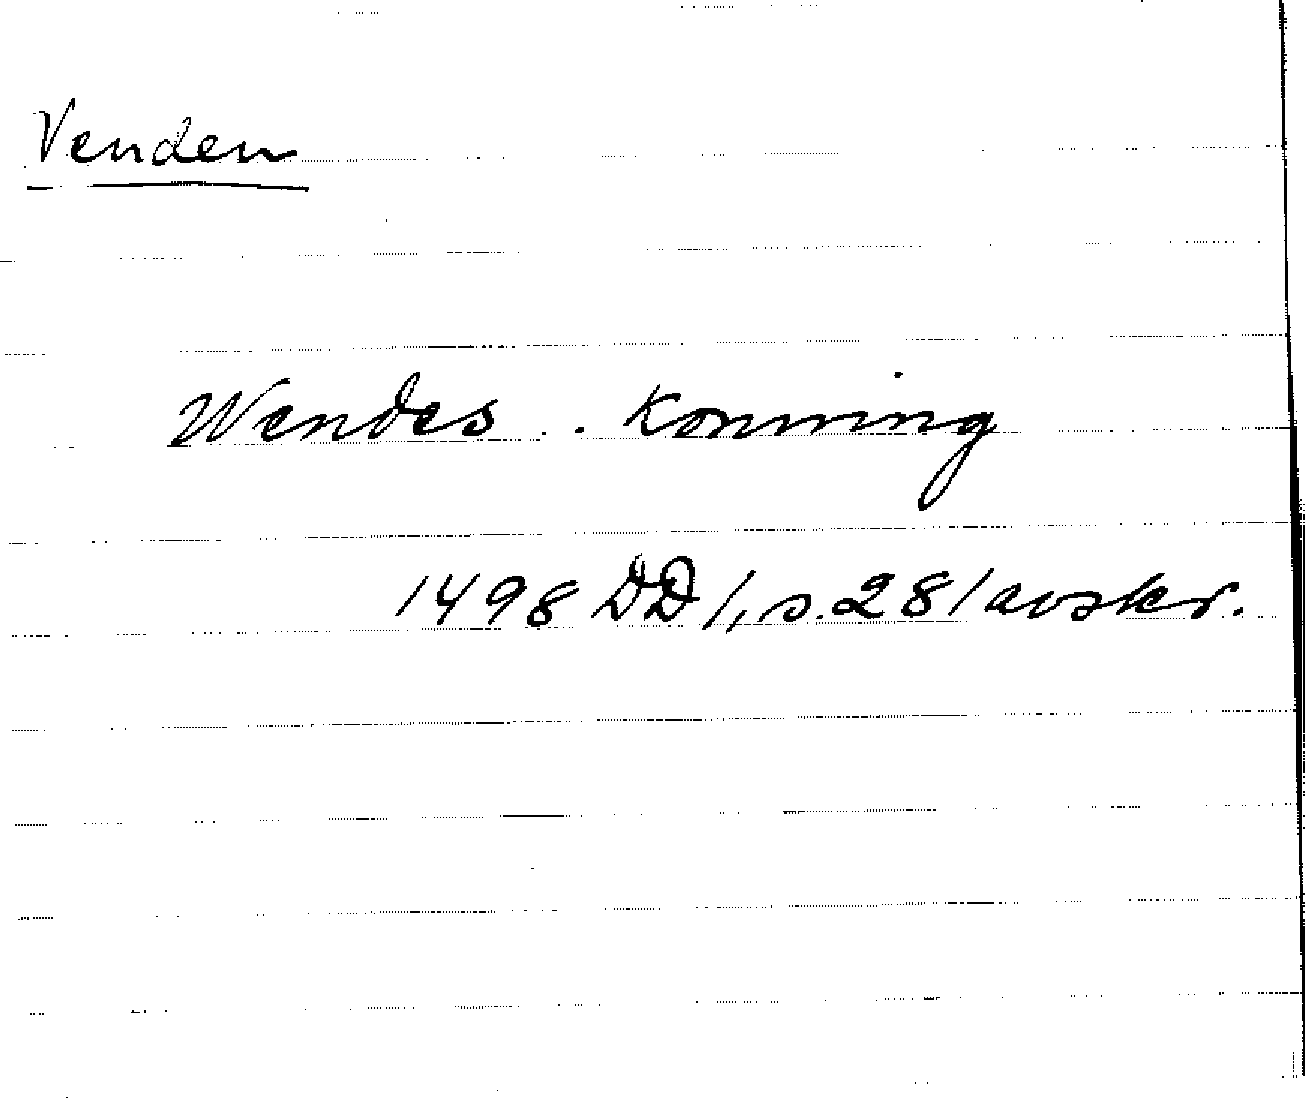 Venden
Wendes . . konning
1498 DD 1, s. 281 avskr.